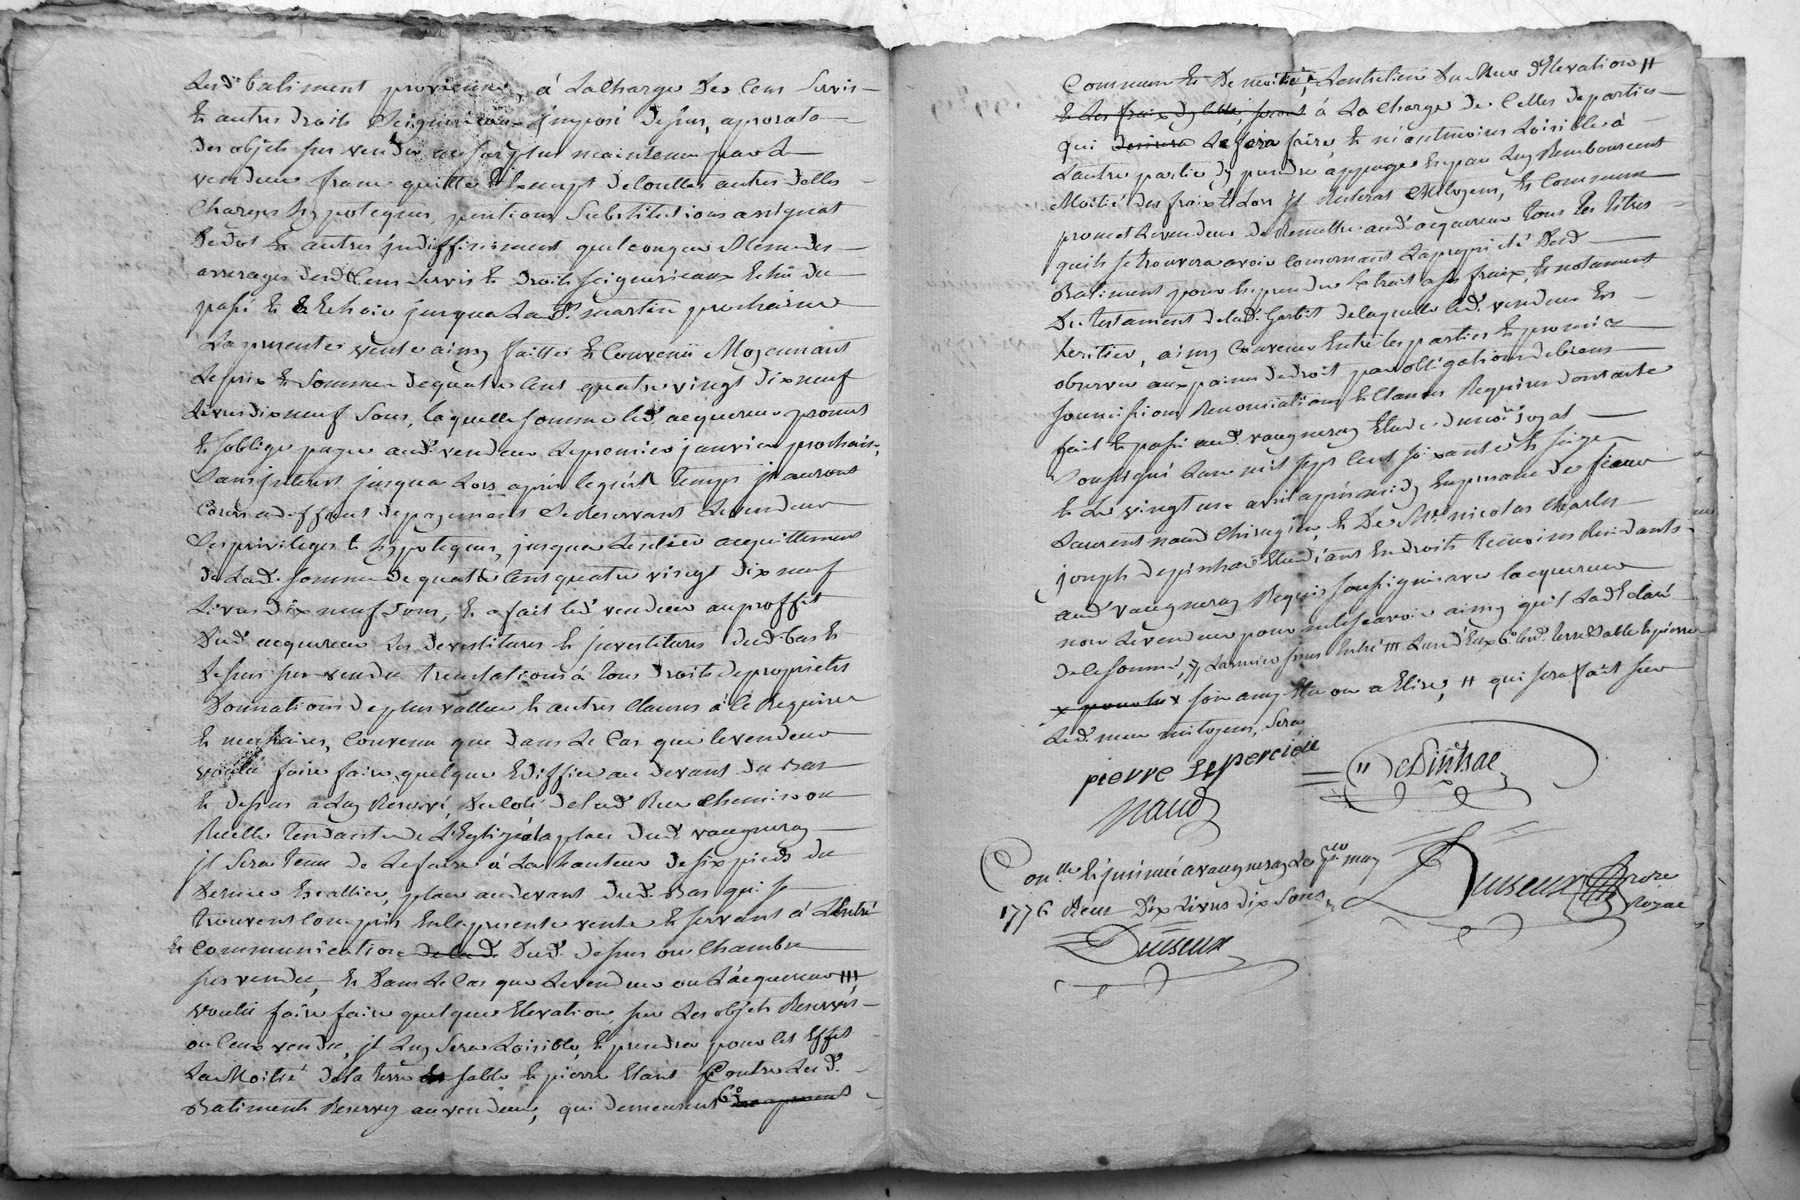 Lesd. batiment provienne, á La charge Des Cens Servis
Et autres droits Seigneuriaux jmposé dessus, aprorata
Des objets sus vendu au surplus maintenu par Le
vendeur franc quitte Et Exempt de touttes autres dettes
Charges hypoteques, pentions Substitutions assignat
De dot Et autres jndifferament quelconque Mesme des
arrerages desd. Cens Servis Et Droits seigneuriaux Echü du
passé Et a Echoir jusqua La St. martin prochaine
La presente vente ainsy faitte Et Convenü Moyennant
Le prix Et Somme de quatre Cent quatre vingt dix neuf
Livres dix neuf Sous, laquelle somme led. acquereur promet
Et soblige payer aud. vendeur Le premier janvier prochain,
Sans jnterest jusqua Lors apres lequel temps jl auront
Cours a deffaut de payement Se Reservant Le vendeur
Ses privileges Et hypoteques, jusqua Lentier acquittement
De Lad. somme De quatre Cens quatre vingt Dix neuf
Livres dix neuf sous, Et a fait led. vendeur au proffit
Dud. acquereur Les Devestitures Et jnvestitures dud. bas Et
Dessus sus vendu translations á tous droits de proprietés
Donnations de plus vallue Et autres Clauses á ce Requises
Et necessaires, Convenu que dans Le Cas que le vendeur
voulu faire faire quelque Ediffice au devant du bas
Et dessus a Luy Reservé, du Coté de lad. Rue Chemin ou
Ruelle tendante de L'Eglize á la place dud. vaugneray
jl Sera tenu de Le faire á La hauteur de six pieds du
Dernier Escallier, place au devant dud. Bas qui se
trouvent Compris En la presente vente Et servant á L'Entré
Et Communication de lad. Dud. dessus ou Chambre
sus vendu, Et Dans Le Cas que Le vendeur ou L'acquereur ///
voulü faire faire quelque Elevation sur Les objets Reservés
ou Ceux vendu, jl Luy Sera Loisible, de prendre pour Cet Effet
La Moitié de la terre sable Et pierre Etant Contre Lesd.
Batiments Reservez au vendeur, qui demeurent
Commun Et De moitié, L'entretien Du Mur d'Elevation //
Et Les frais d'icelle, seront á La Charge de Celles des parties
qui Le fera faire, Et neantmoins Loisible á
L'autre partie d'y prendre appuye En par Luy Remboursant
Moitié des fraix Et Lors jl Resterat Mitoyens, Et Commun
promet Le vendeur de Remettre aud. acquereur tous Les titres
quils se trouvera avoir Concernant La proprieté Desd.
Batiment pour En prendre Extrait a ses fraix, Et notament
Du testament de lad. Garbit de laquelle led. vendeur Est
heritier, ainsy Convenu Entre les parties Et promis
observer aux peines de droit par obligations de biens
soumissions Renonciations Et Clauses Requises dont acte
fait Et passé aud. vaugneray Etude du no.re Royal
Soussigné L'an mil sept Cent soixante Et Seize
Et Le vingt un avril apres midy En presence de sieur
Laurent naud Chirurgien, Et De Mr. nicolas Charles
joseph depinhac Etudiant En droits temoins Residants
aud. vaugneray Requis soussignés avec lacquereur
non Le vendeur pour ne le scavoir ainsy quil La declaré
// qui sera fait sur
Led. mur mitoyens, Sera
pierre
naud
DePinhac
Con.lle Et jnsinué a vaugneray Le p.er may
1776 Reçu Dix Livres dix Sous
Duiseux
Duiseux no.re
Royal